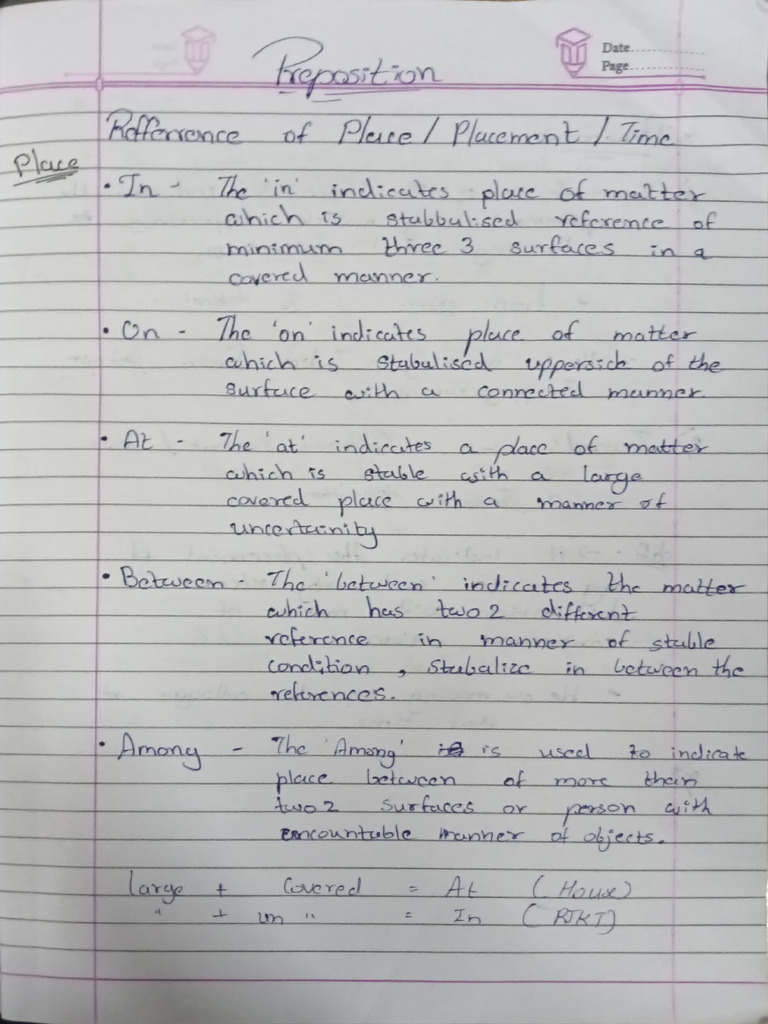 Preposition
Date..............
Page..............
Refferrence of Place / Placement / Time
Place
• In - The 'in' indicates place of matter
which is stabbulised reference of
minimum three 3 surfaces in a
covered manner.
• On - The 'on' indicates place of matter
which is stabulised uppersich of the
surface with a connected manner.
• At - The 'at' indicates a place of matter
which is stable with a large
covered place with a manner of
uncertainity
• Between - The 'between' indicates the matter
which has two 2 different
reference in manner of stable
condition , stabalize in between the
references.
• Among - The 'Among' is used to indicate
place between of more than
two 2 surfaces or person with
encountable manner of objects.
large + Covered = At (House)
" + un " = In